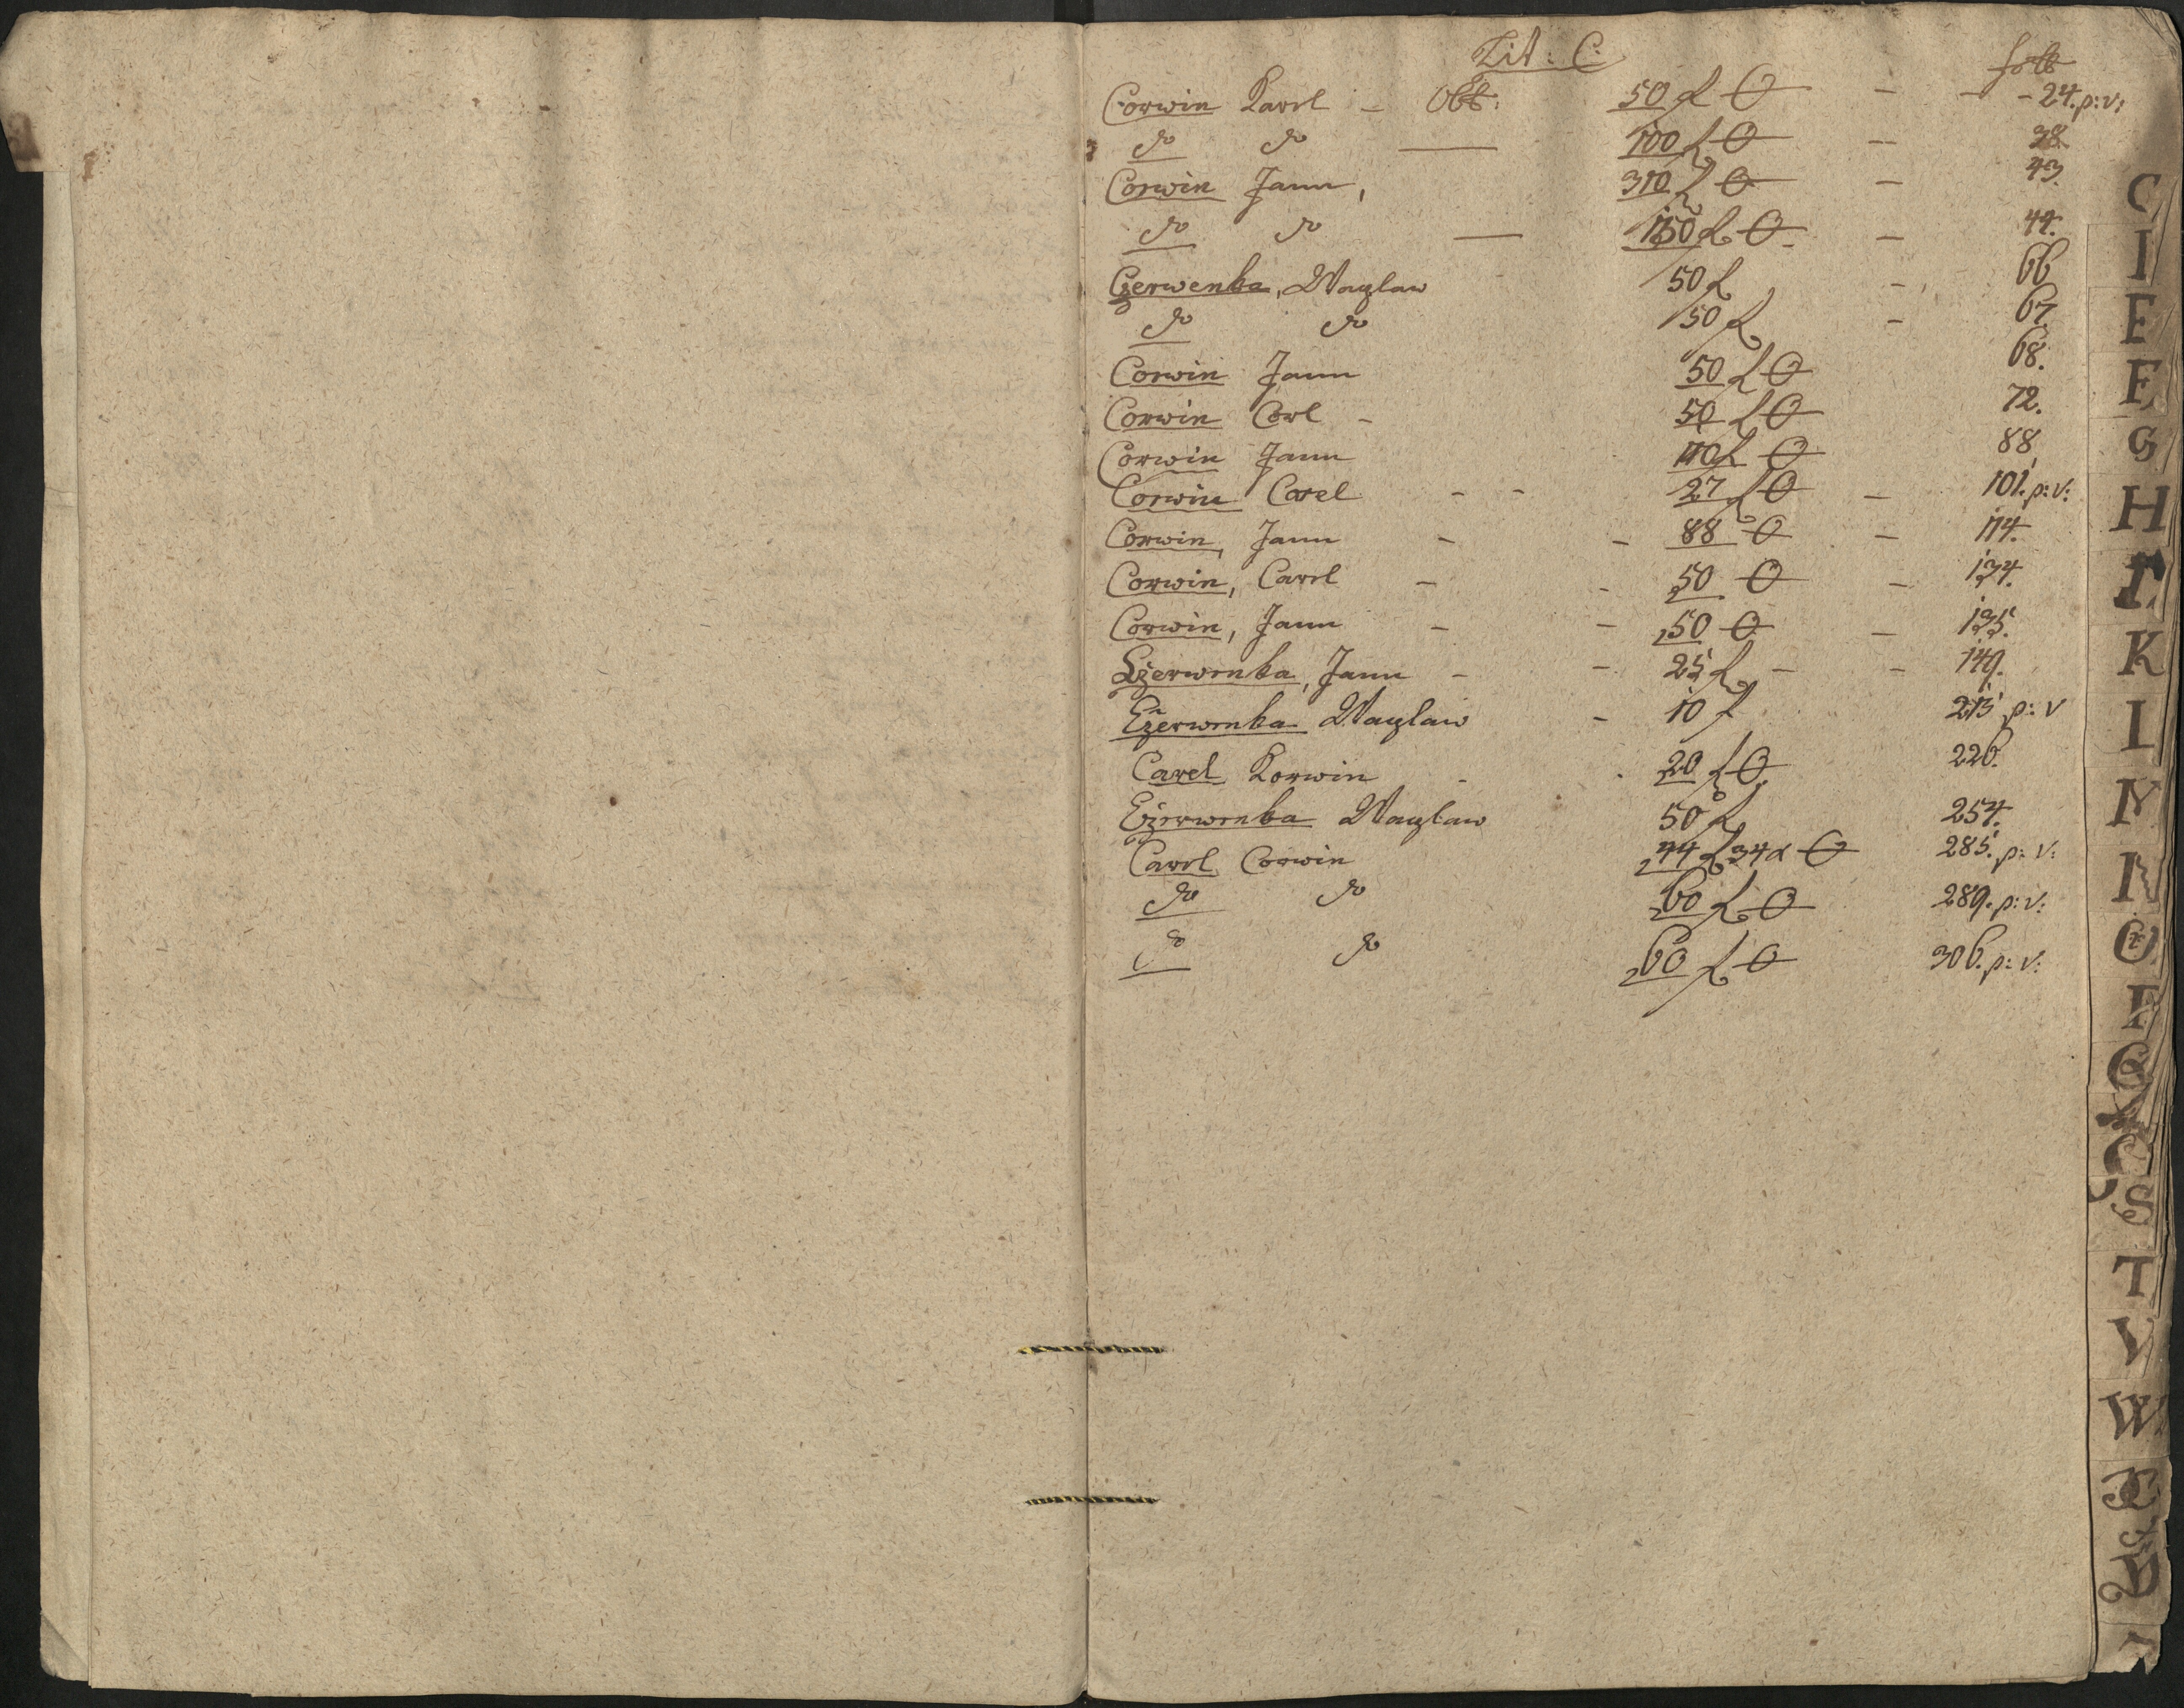 Lit: C: folio
Corwin Karel – Obl: 50 f O – – 24. p: v:
do do — 100 f O – 38
Corwin Jann, 310 f O – 43.
do do — 150 f O – 44.
Czerwenka, Waczlaw 50 f – 66
do do 50 f – 67.
Corwin Jann 50 f O 68.
Corwin Carl – 50 f O 72.
Corwin Jann 110 f O 88
Corwin Carel – – 27 f O – 101. p: v:
Corwin, Jann – – 88 O – 114.
Corwin, Carel – – 50 O – 134.
Corwin, Jann – – 50 O – 135.
Czerwenka, Jann – – 25 f – – 149.
Czerwenka Waczlaw – 10 f 215 p: v
Carel Korwin – 20 f O 226.
Czerwenka Waczlaw 50 f 254.
Carel Corwin 44 f 34 x O 285. p: v:
do do 60 f O 289. p: v:
do do 60 f O 306. p: v:
C
E
F
G
H
I
K
L
M
N
O
P
Q
S
T
V
W
X
Y